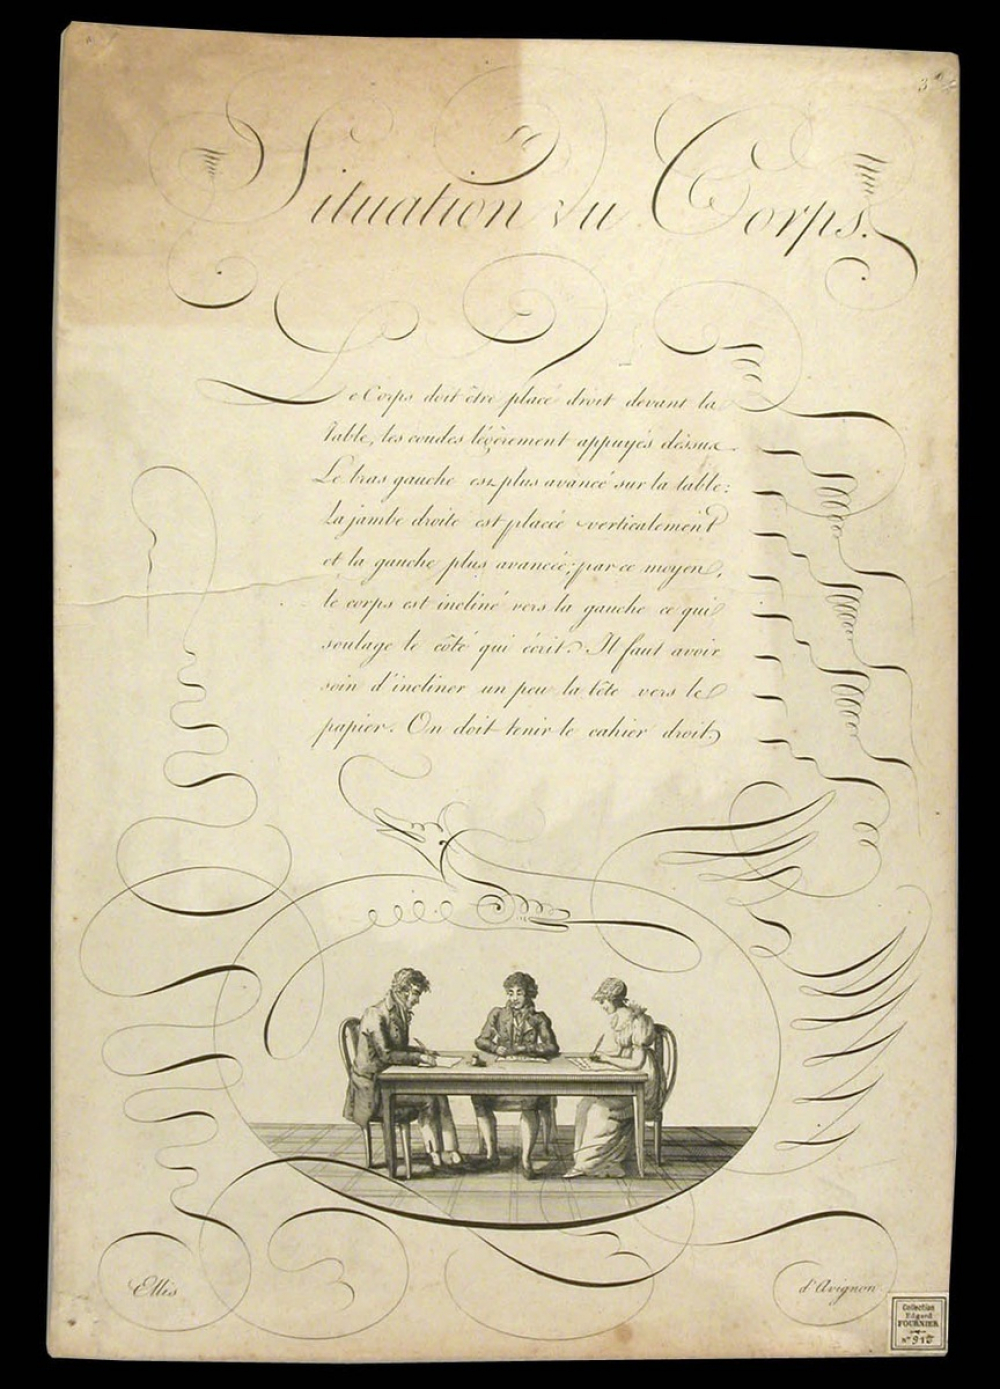 Situation du Corps.
Le Corps doit être placé droit devant la
table, les coudes légèrement appuyés déssus.
Le bras gauche est plus avancé sur la table:
la jambe droite est placée verticalement
et la gauche plus avancée; par ce moyen,
le corps est incliné vers la gauche ce qui
soulage le côté qui écrit. Il faut avoir
soin d'incliner un peu la tête vers le
papier. On doit tenir le cahier droit.
Ellès
d'Avignon.
Collection
Edgard
FOURNIER